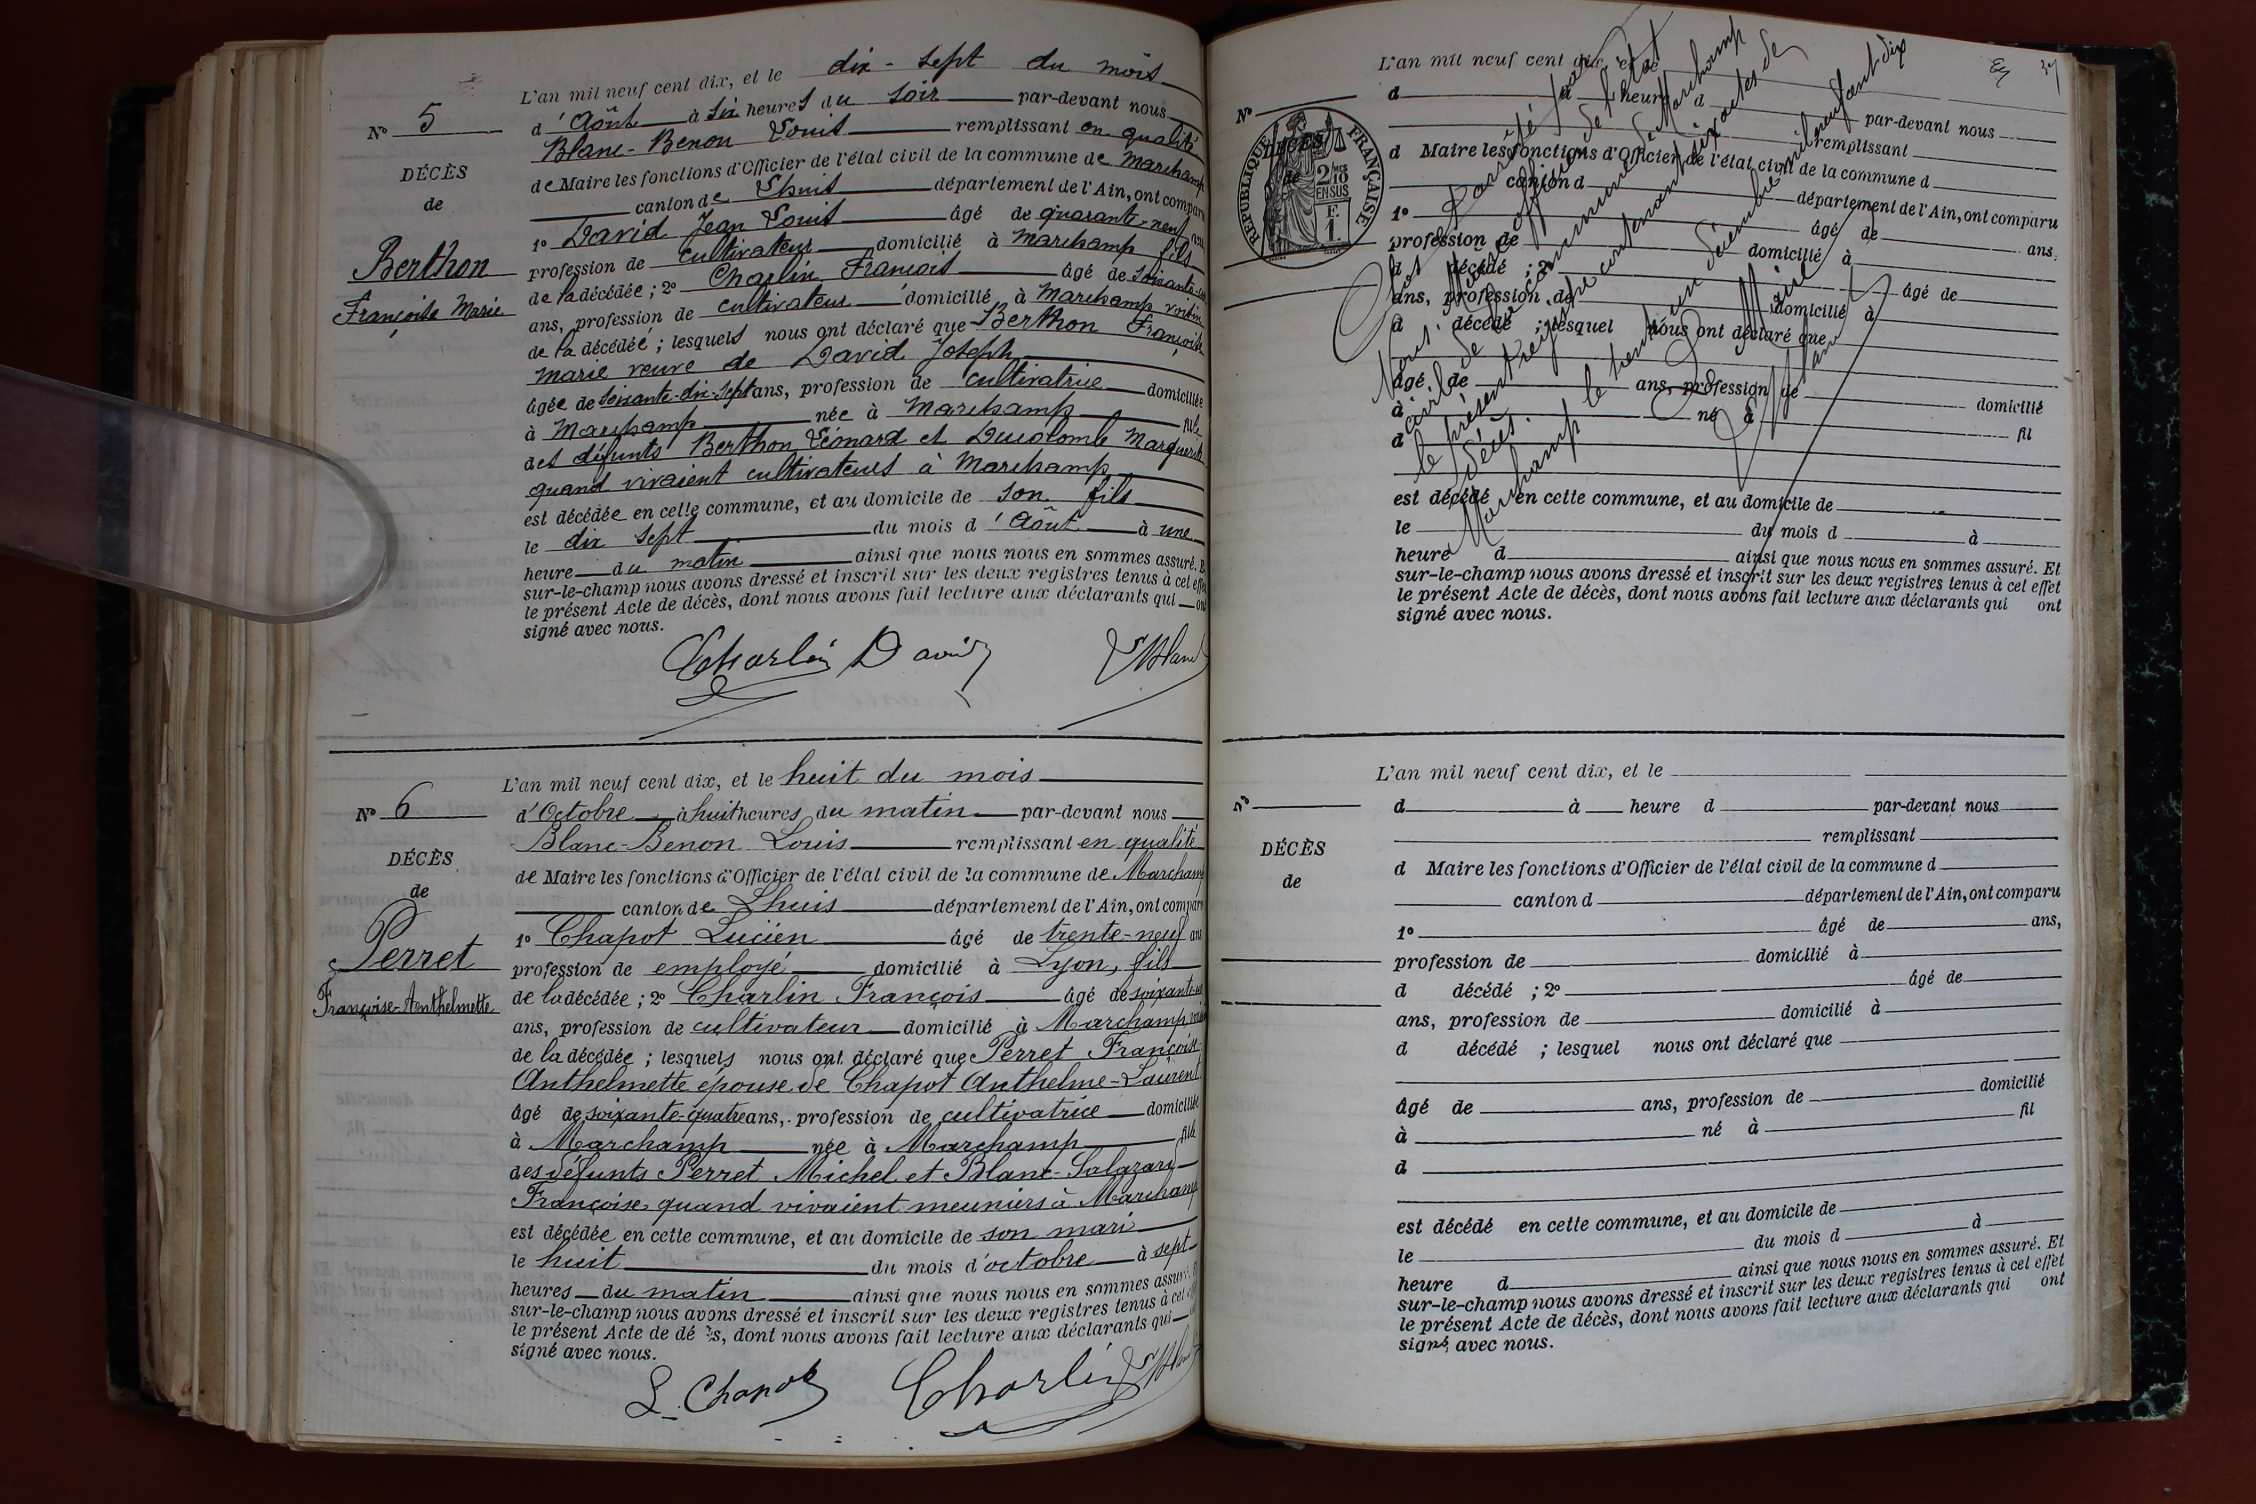 L'an mil neuf cent dix, et le dix-sept du mois
N° 5
d'Août à six heures du soir par-devant nous
Blanc-Benon Louis remplissant en qualité
DÉCÈS
de Maire les fonctions d'Officier de l'état civil de la commune de Marchamp
de
canton de Lhuis département de l'Ain, ont comparu
1° David Jean Louis âgé de quarante-neuf ans
Berthon
profession de cultivateur domicilié à Marchamp fils
Françoise Marie
de la décédée ; 2° Charlin François âgé de soixante-un
ans, profession de cultivateur domicilié à Marchamp voisin
de la décédée ; lesquels nous ont déclaré que Berthon Françoise
Marie veuve de David Joseph
âgée de soixante-dix-sept ans, profession de cultivatrice domiciliée
à Marchamp née à Marchamp fille
des défunts Berthon Léonard et Ducolomb Marguerite
quand vivaient cultivateurs à Marchamp
est décédée en cette commune, et au domicile de son fils
le dix sept du mois d'Août à une
heure du matin ainsi que nous nous en sommes assuré. E
sur-le-champ nous avons dressé et inscrit sur les deux registres tenus à cet effet
le présent Acte de décès, dont nous avons fait lecture aux déclarants qui ont
signé avec nous.
Charlin David LBlanc
L'an mil neuf cent dix, et le huit du mois
N° 6
d'Octobre à huit heures du matin par-devant nous
Blanc-Benon Louis remplissant en qualité
DÉCÈS
de Maire les fonctions d'Officier de l'état civil de la commune de Marchamp
de
canton de Lhuis département de l'Ain, ont comparu
1° Chapot Lucien âgé de trente-neuf ans
Perret
profession de employé domicilié à Lyon, fils
Françoise-Anthelmette
de la décédée ; 2° Charlin François âgé de soixante-un
ans, profession de cultivateur domicilié à Marchamp, voisin
de la décédée ; lesquels nous ont déclaré que Perret Françoise
Anthelmette épouse de Chapot Anthelme-Laurent
âgé de soixante-quatre ans, profession de cultivatrice domiciliée
à Marchamp née à Marchamp fille
des défunts Perret Michel et Blanc-Salazard
Françoise, quand vivaient meuniers à Marchamp
est décédée en cette commune, et au domicile de son mari
le huit du mois d'octobre à sept
heures du matin ainsi que nous nous en sommes assuré. E
sur-le-champ nous avons dressé et inscrit sur les deux registres tenus à cet effet
le présent Acte de décès, dont nous avons fait lecture aux déclarants qui
signé avec nous.
L. Chapot Charlin LBlanc
L'an mil neuf cent dix, et le
N°
d à heure d par-devant nous
RÉPUBLIQUE FRANÇAISE
2/10 EN SUS
F. 1.
remplissant
DÉCÈS
de
d Maire les fonctions d'Officier de l'état civil de la commune d
canton d département de l'Ain, ont comparu
1° âgé de ans,
profession de domicilié à
d décédé ; 2° âgé de
ans, profession de domicilié à
d décédé ; lesquel nous ont déclaré que
âgé de ans, profession de domicilié
à né à fil
d
est décédé en cette commune, et au domicile de
le du mois d à
heure d ainsi que nous nous en sommes assuré. Et
sur-le-champ nous avons dressé et inscrit sur les deux registres tenus à cet effet
le présent Acte de décès, dont nous avons fait lecture aux déclarants qui ont
signé avec nous.
Clos et arrêté par
Nous, Maire, officier de l'état
civil de la commune de Marchamp
le présent registre contenant six actes de
décès.
Marchamp le trente un décembre mil neuf cent dix
Le Maire
LBlanc
L'an mil neuf cent dix, et le
N°
d à heure d par-devant nous
remplissant
DÉCÈS
d Maire les fonctions d'Officier de l'état civil de la commune d
de
canton d département de l'Ain, ont comparu
1° âgé de ans,
profession de domicilié à
d décédé ; 2° âgé de
ans, profession de domicilié à
d décédé ; lesquel nous ont déclaré que
âgé de ans, profession de domicilié
à né à fil
d
est décédé en cette commune, et au domicile de
le du mois d à
heure d ainsi que nous nous en sommes assuré. Et
sur-le-champ nous avons dressé et inscrit sur les deux registres tenus à cet effet
le présent Acte de décès, dont nous avons fait lecture aux déclarants qui ont
signé avec nous.